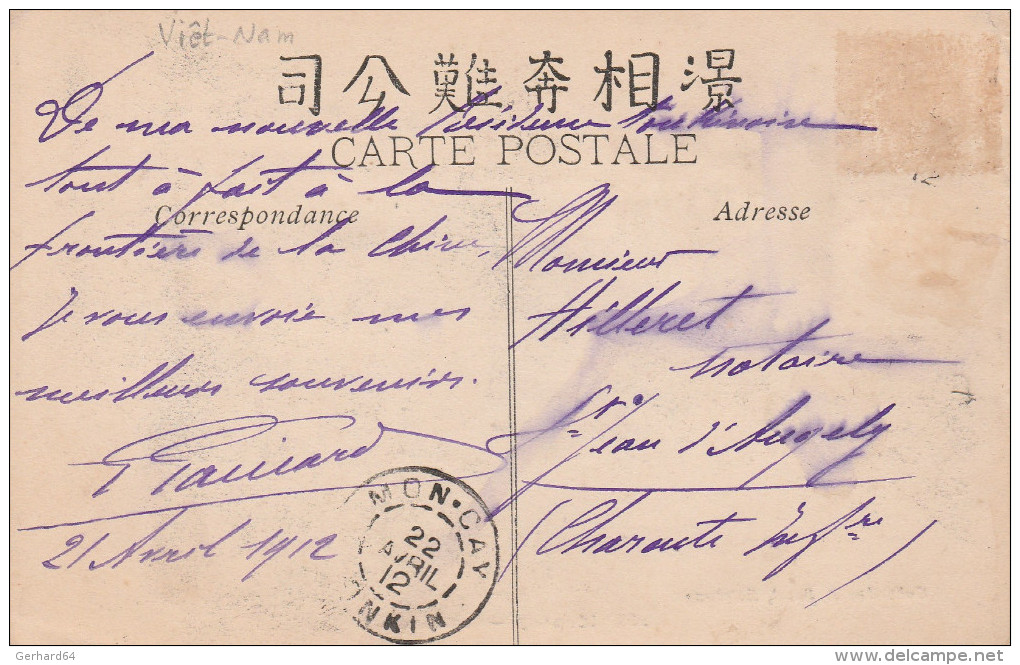 Viêt-Nam
司公難奔相湶
De ma nouvelle Résidence Tonkinoise
CARTE POSTALE
Correspondance
tout à fait à la
frontière de la Chine,
Je vous envoie mes
meilleurs souvenirs.
21 Avril 1912
Adresse
Monsieur
Hilleret
notaire
St Jean d'Angely
(Charente Infre)
MON-CAY
22
AVRIL
12
ONKIN
12
Gerhard64
© DELCAMPE.NET